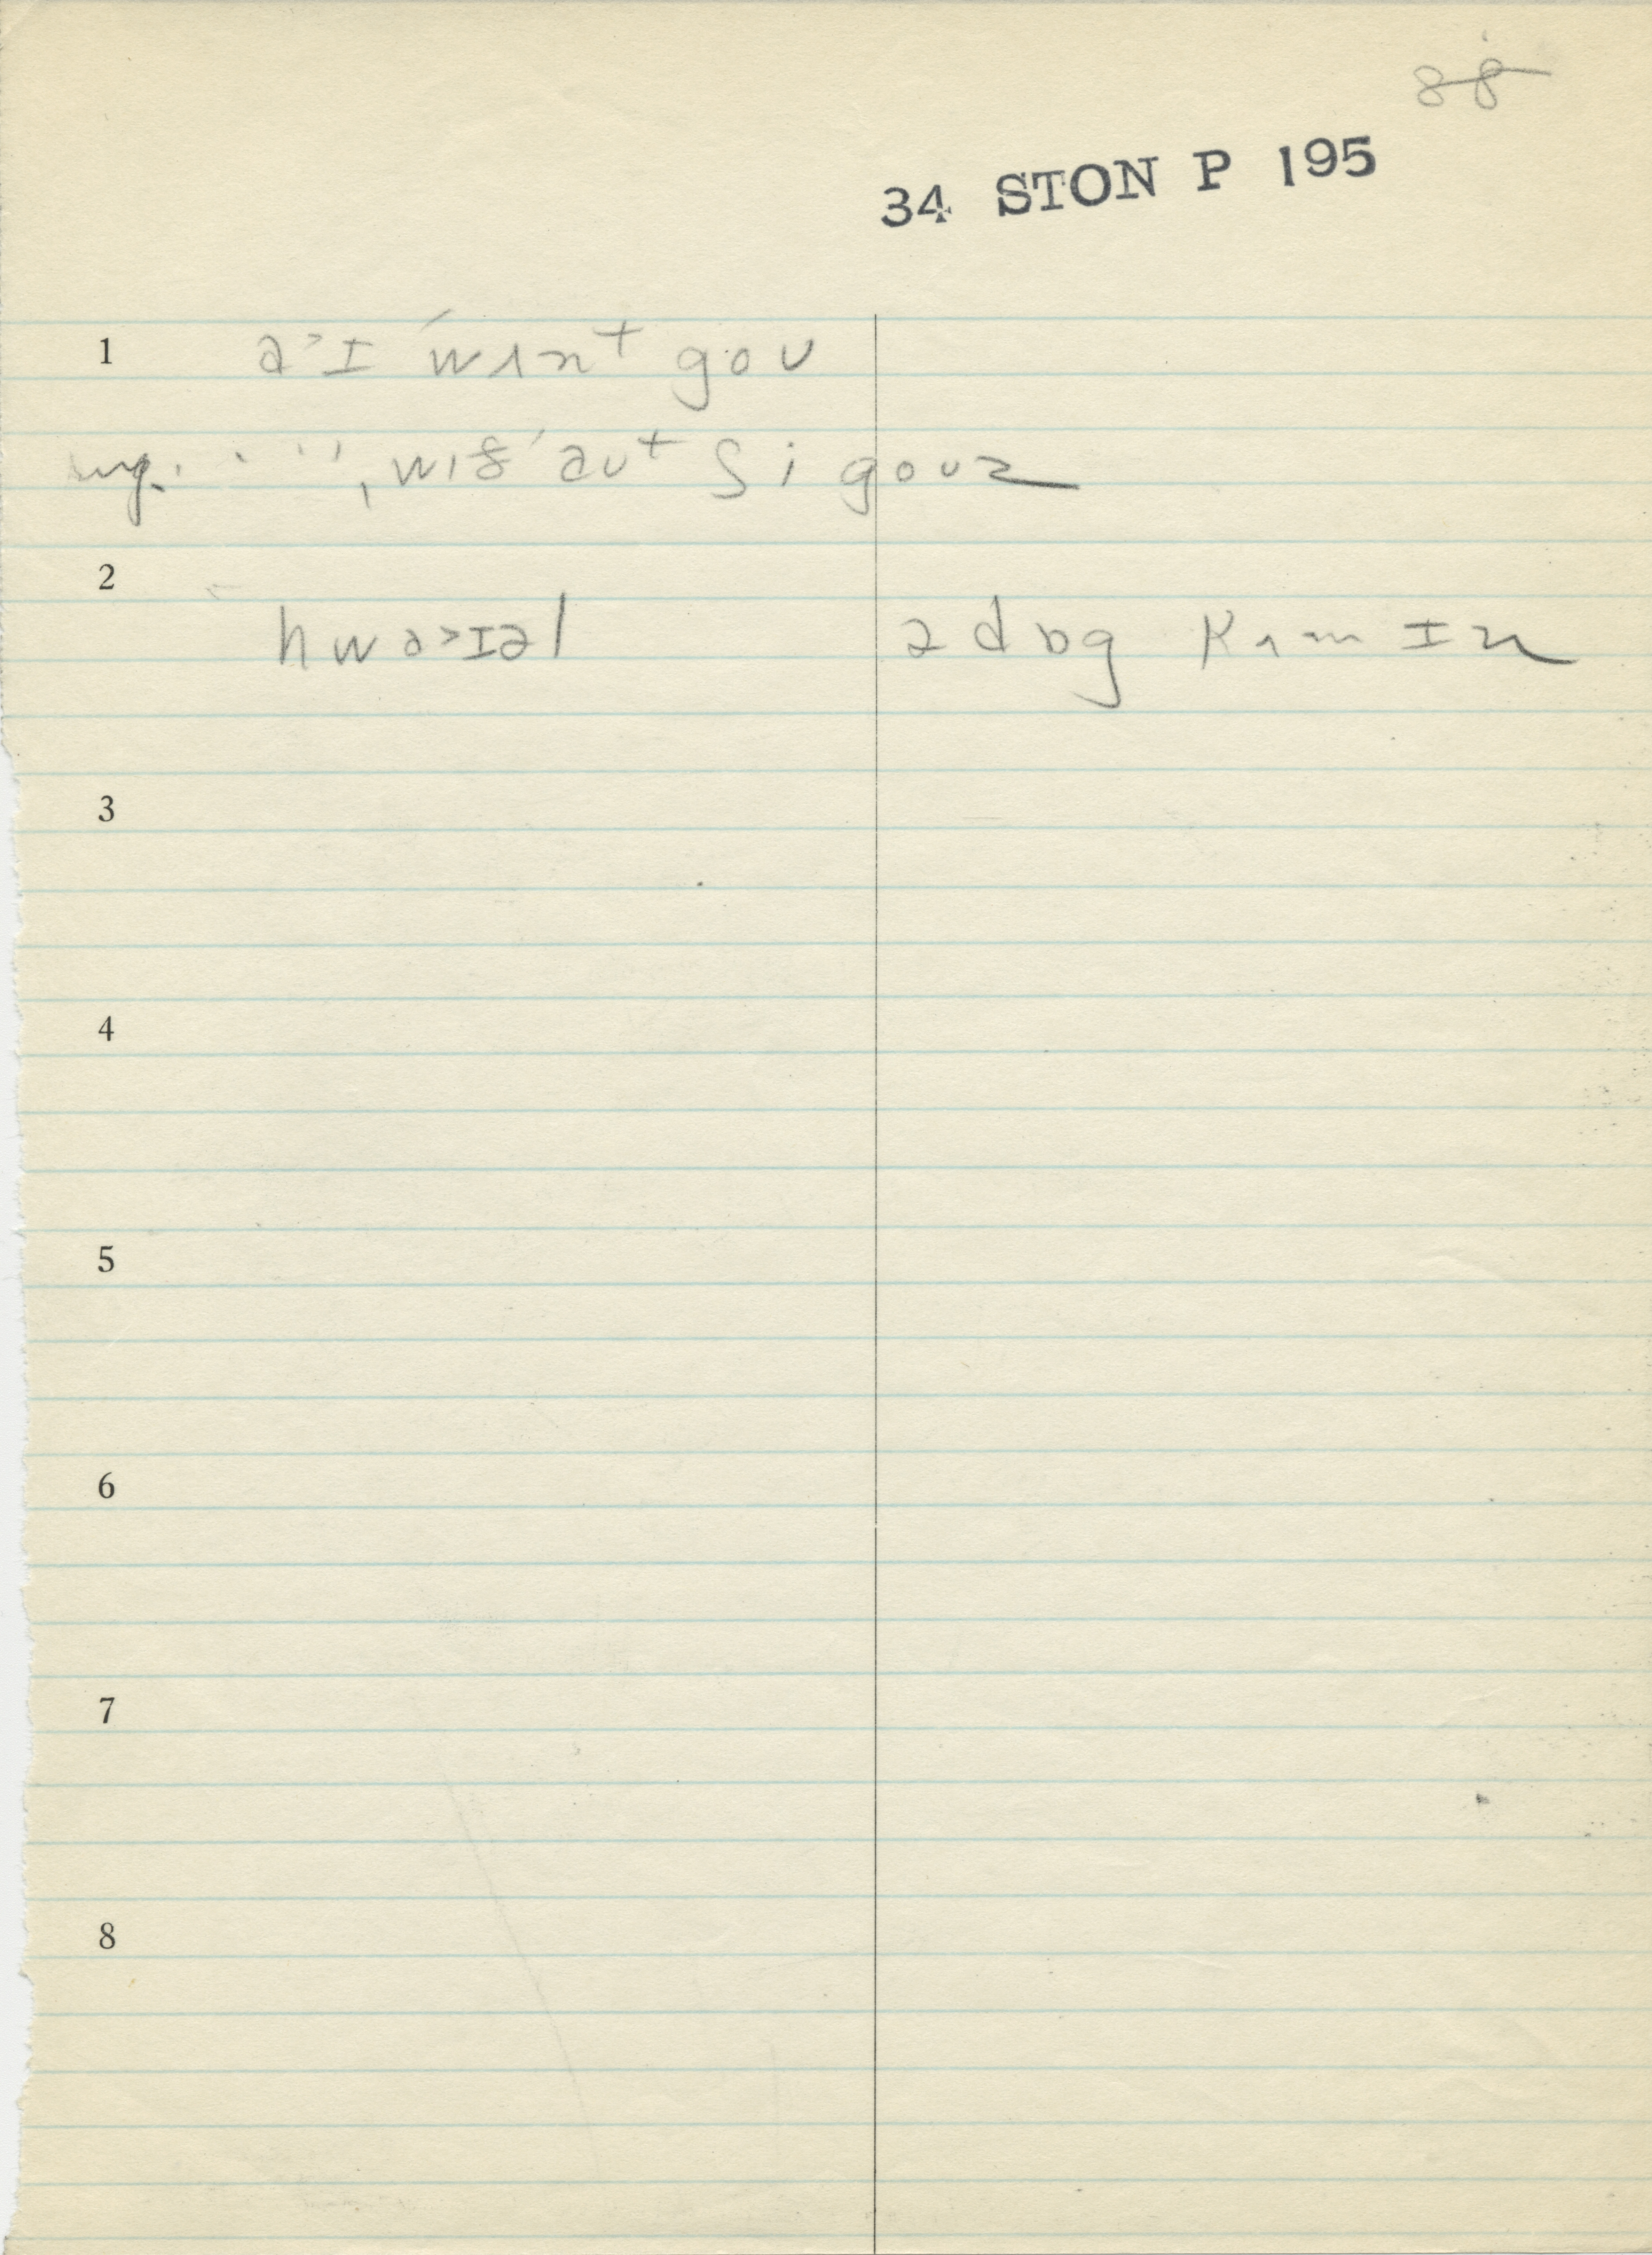 88
34 STON P 195
1 a˃ɪ ʹwʌnt goʊ
sug. · ˈˈ, wɪðˈaʊt ʃi goʊz
2 hwa˃ɪəl ə dɒg kʌm ɪn
3
4
5
6
7
8